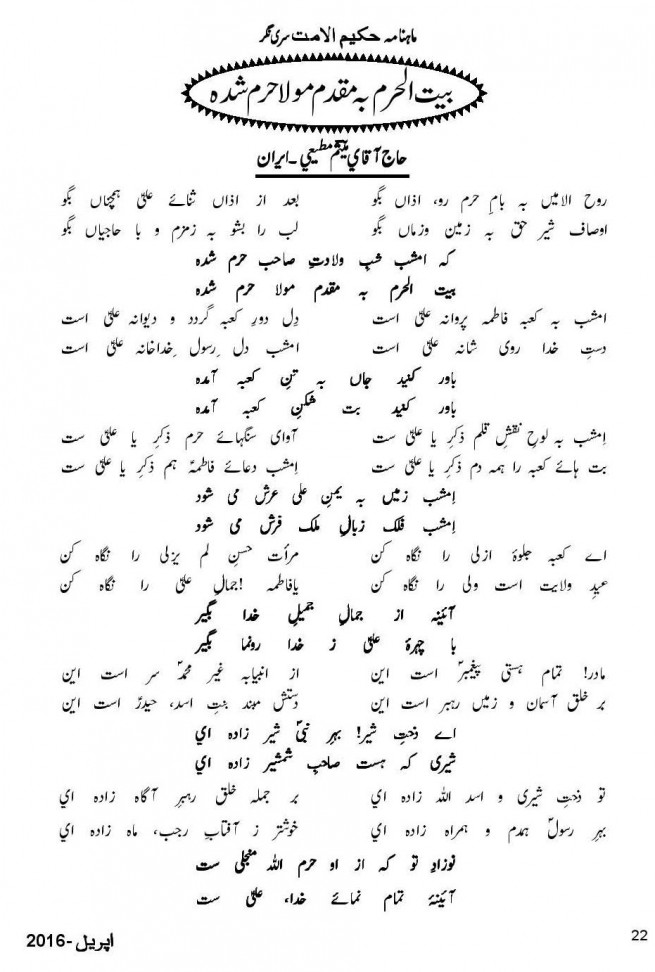 ماہنامہ حکیم الامت سری نگر
بیت الحرم بہ مقدم مولا حرم شدہ
حاج آقاي میثم مطیعي - ایران
روح الامیں بہ بامِ حرم رو، اذاں بگو بعد از اذاں ثنائے علیؑ ہمچناں بگو
اوصافِ شیرِ حق بہ زمین وزماں بگو لب را بشو بہ زمزم و با حاجیاں بگو
کہ امشب شبِ ولادتِ صاحب حرم شدہ
بیت الحرم بہ مقدم مولا حرم شدہ
امشب بہ کعبہ فاطمہ پروانہ علیؑ است دِل دورِ کعبہ گردد و دیوانہ علیؑ است
دستِ خدا روی شانہ علیؑ است امشب دل ِرسولِ ِخداخانہ علیؑ است
باور کنید جاں بہ تنِ کعبہ آمدہ
باور کنید بت شکنِ کعبہ آمدہ
اِمشب بہ لوحِ نقشِ قلم ذکرِ یا علیؑ ست آوای سنگہائے حرم ذکرِ یا علیؑ ست
بت ہائے کعبہ را ہمہ دم ذکرِ یا علیؑ ست اِمشب دعائے فاطمہؑ ہم ذکرِ یا علیؑ ست
اِمشب زمیں بہ یمنِ علی عرش می شود
اِمشب فلک زبالِ ملک فرش می شود
اے کعبہ جلوۂ ازلی را نگاہ کن مرأت حسنِ لم یزلی را نگاہ کن
عیدِ ولایت است ولی را نگاہ کن یافاطمہ !جمالِ علیؑ را نگاہ کن
آئینہ از جمالِ جمیلِ خدا بگیر
با چہرۂ علیؑ ز خدا رونما بگیر
مادر! تمام ہستی پیغمبرؐ است این از انبیابہ غیر محمدؐ سر است این
بر خلق آسمان و زمیں رہبر است این دستش مبند بنتِ اسد، حیدرؑ است این
اے دختِ شیر! بہرِ نبیؐ شیر زادہ اي
شیری کہ ہست صاحبِ شمشیر زادہ اي
تو دختِ شیری و اسد اللہ زادہ اي بر جملہ خلق رہبرِ آگاہ زادہ اي
بہرِ رسولؐ ہمدم و ہمراہ زادہ اي خوشتر ز آفتابِ رجب، ماہ زادہ اي
نوزادِ تو کہ از او حرم اللہ منجلی ست
آئینۂ تمام نمائے خدا، علیؑ ست
اپریل -2016
22